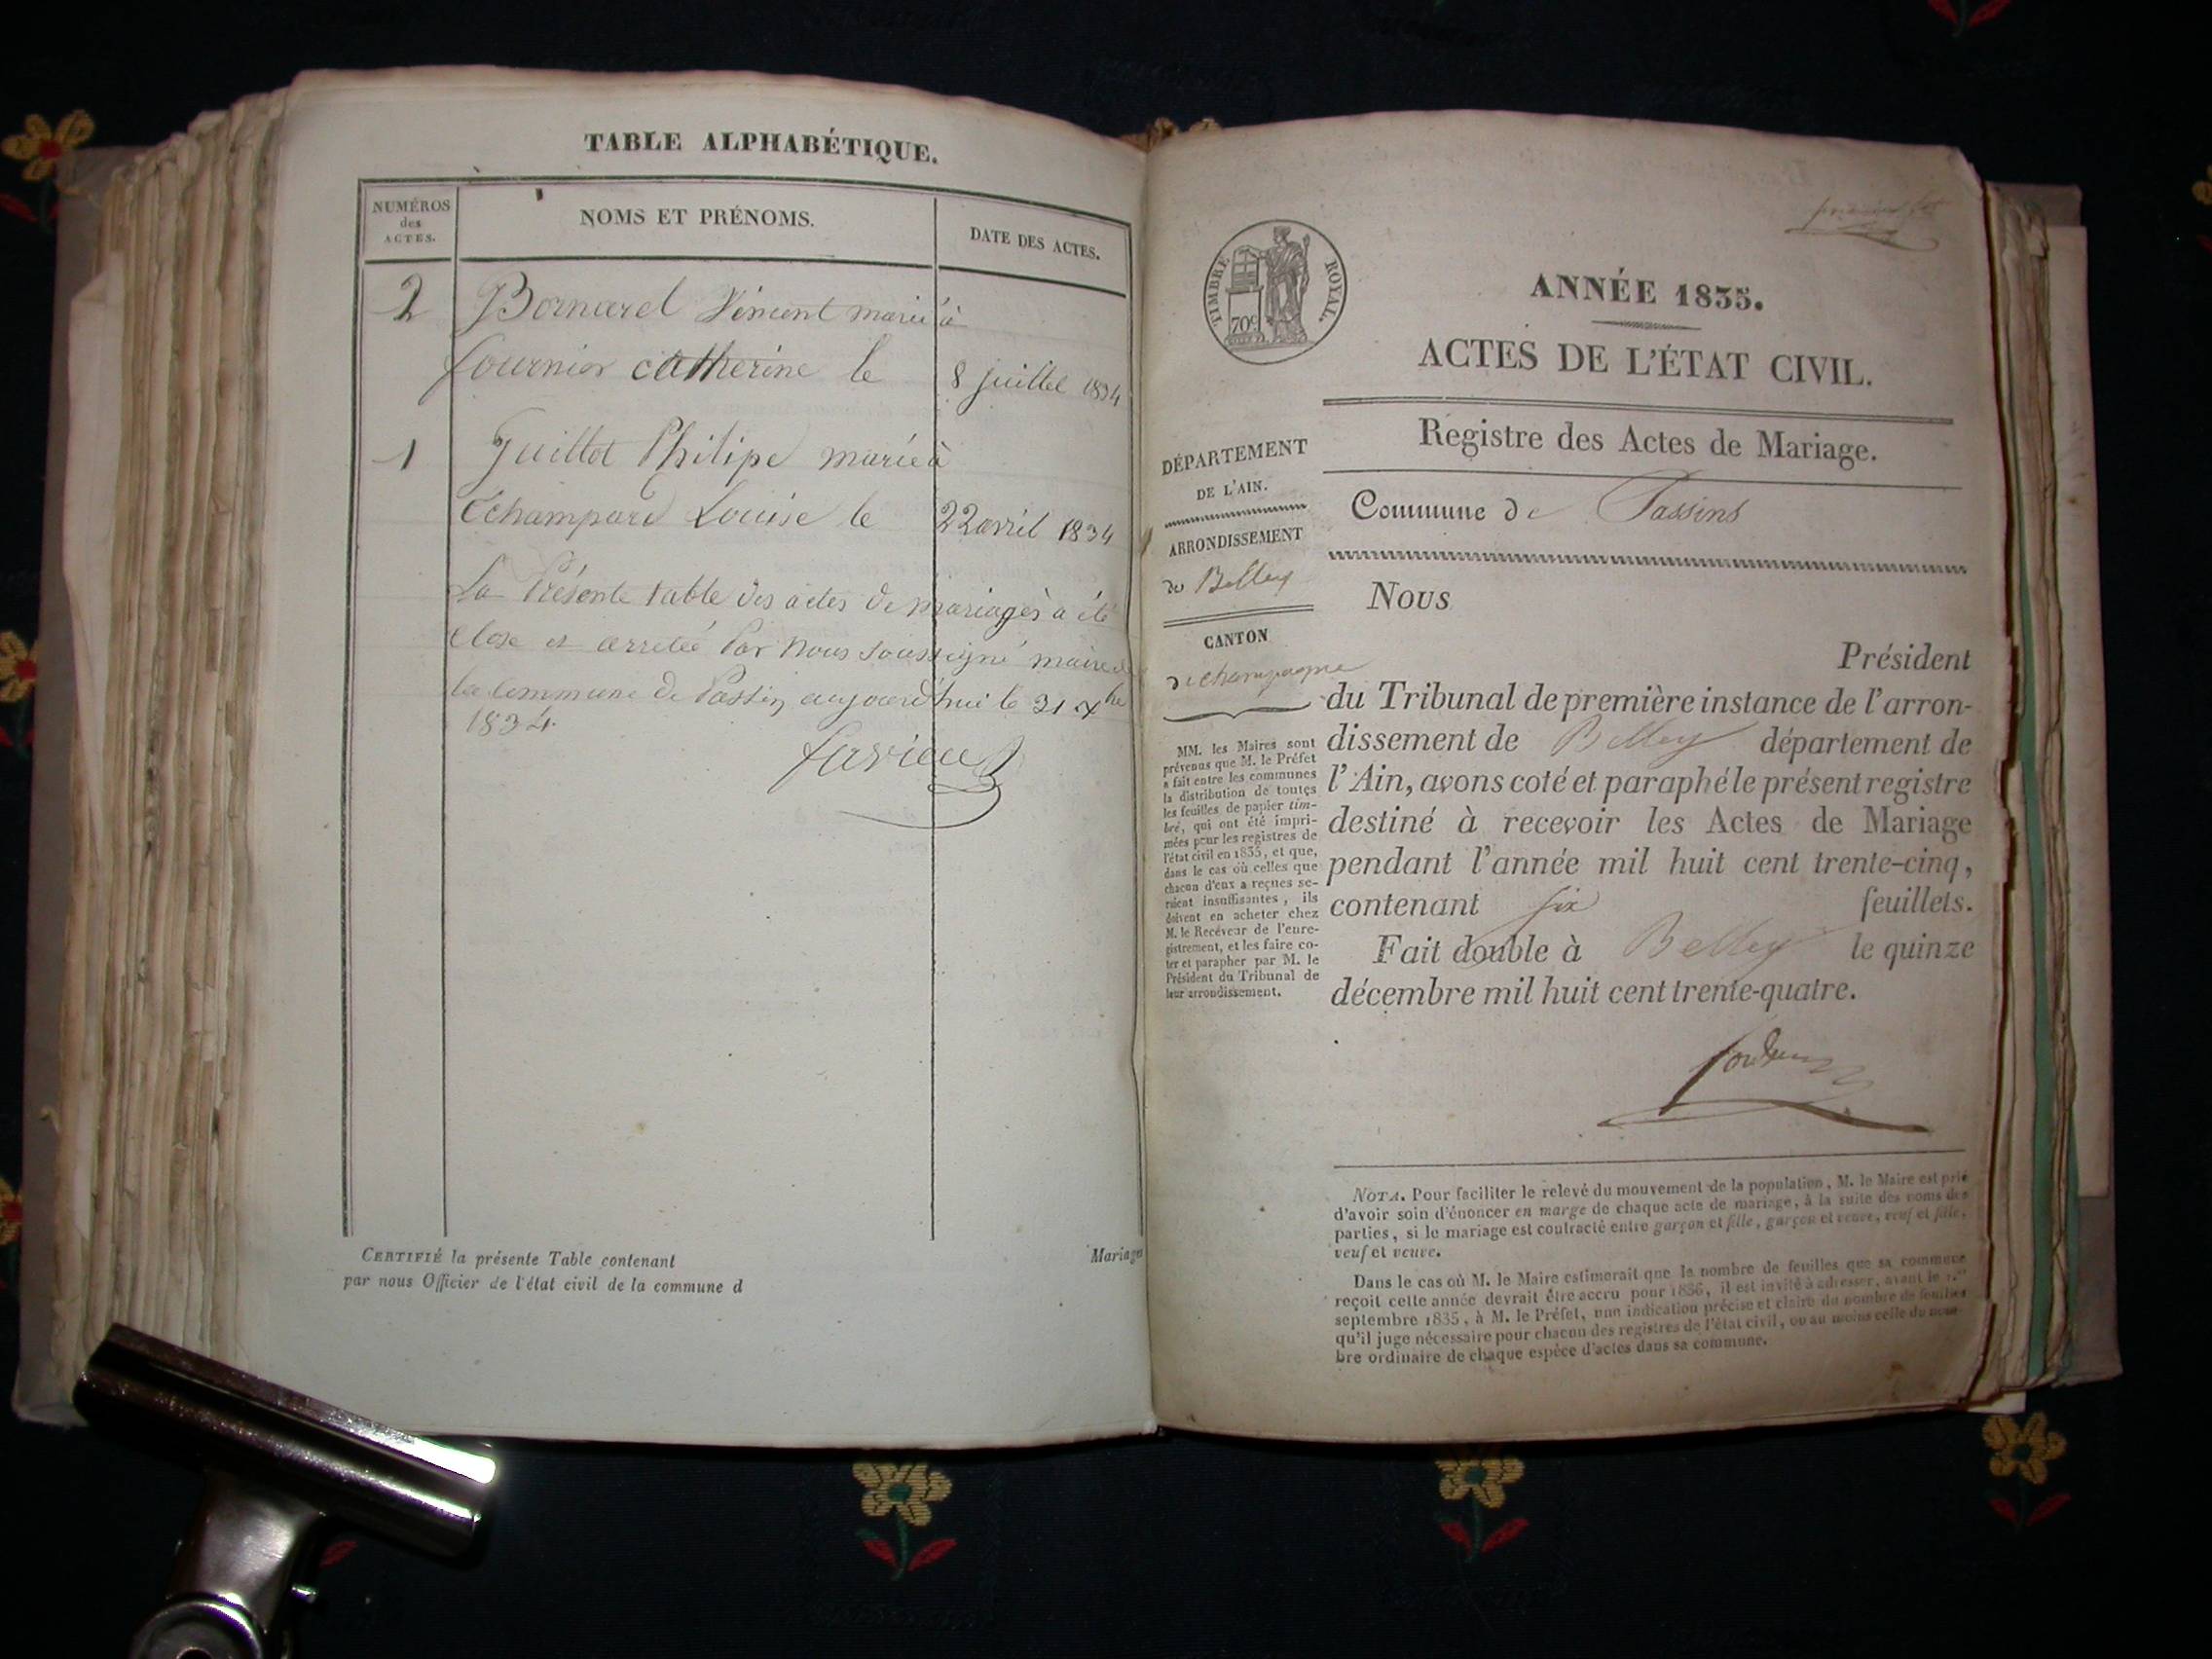 TABLE ALPHABÉTIQUE.
NUMÉROS
des
ACTES.
NOMS ET PRÉNOMS.
DATE DES ACTES.
2 Bornarel Vincent marié à
fournier catherine le 8 juillet 1834
1 Guillot Philipe marié à
Echampard Louise le 22 avril 1834
La Présente table des actes de mariages a été
close et arretée Par nous soussigné maire de
la commune de Passin aujourd'hui le 31 Xbre
1834.
CERTIFIÉ la présente Table contenant Mariages
par nous Officier de l'état civil de la commune d
TIMBRE ROYAL.
70c
ANNÉE 1835.
ACTES DE L'ÉTAT CIVIL.
Registre des Actes de Mariage.
DÉPARTEMENT
DE L'AIN.
ARRONDISSEMENT
de Belley
CANTON
de champagne
MM. les Maires sont
prévenus que M. le Préfet
a fait entre les communes
la distribution de toutes
les feuilles de papier tim-
bré, qui ont été impri-
mées pour les registres de
l'état civil en 1835, et que,
dans le cas où celles que
chacun d'eux a reçues se-
raient insuffisantes, ils
doivent en acheter chez
M. le Receveur de l'enre-
gistrement, et les faire co-
ter et parapher par M. le
Président du Tribunal de
leur arrondissement.
Commune de Passins
Nous
Président
du Tribunal de première instance de l'arron-
dissement de Belley département de
l'Ain, avons coté et paraphé le présent registre
destiné à recevoir les Actes de Mariage
pendant l'année mil huit cent trente-cinq,
contenant six feuillets.
Fait double à Belley le quinze
décembre mil huit cent trente-quatre.
NOTA. Pour faciliter le relevé du mouvement de la population, M. le Maire est prié
d'avoir soin d'énoncer en marge de chaque acte de mariage, à la suite des noms des
parties, si le mariage est contracté entre garçon et fille, garçon et veuve, veuf et fille,
veuf et veuve.
Dans le cas où M. le Maire estimerait que le nombre de feuilles que sa commune
reçoit cette année devrait être accru pour 1836, il est invité à adresser, avant le 1.er
septembre 1835, à M. le Préfet, une indication précise et claire du nombre de feuilles
qu'il juge nécessaire pour chacun des registres de l'état civil, ou au moins celle du nom-
bre ordinaire de chaque espèce d'actes dans sa commune.